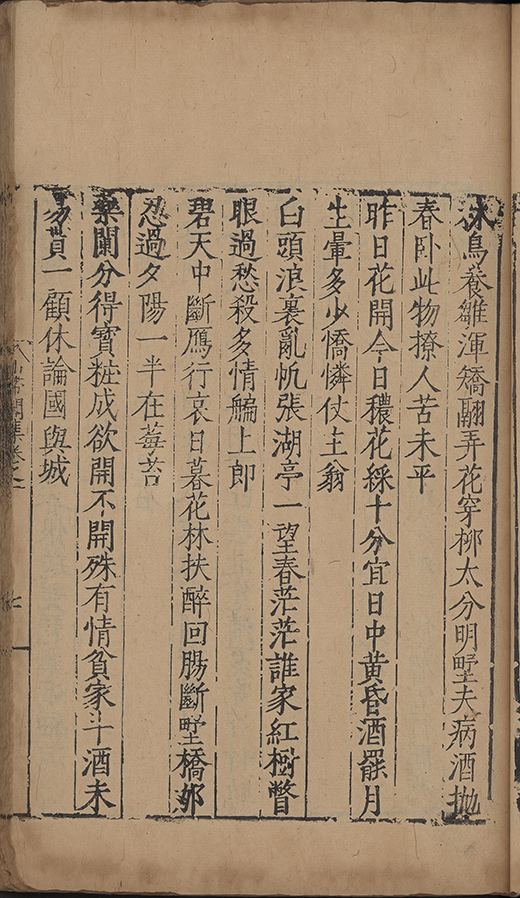 沐鳥養雛渾矯翮弄花穿柳太分明墅夫病酒拋
春卧此物撩人苦未平
昨日花開今日穠花綵十分宜日中黄昏酒罷月
生暈多少憍憐仗主翁
白頭浪裏亂帆張湖亭一望春茫茫誰家紅樹瞥
眼過愁殺多情艑上郎
碧天中斷鴈行哀日暮花林扶醉回腸斷墅橋
忽過夕陽一半在莓苔
藥闌分得寳粧成欲開不開殊有情貧家斗酒未
多貰一顧休論國與城